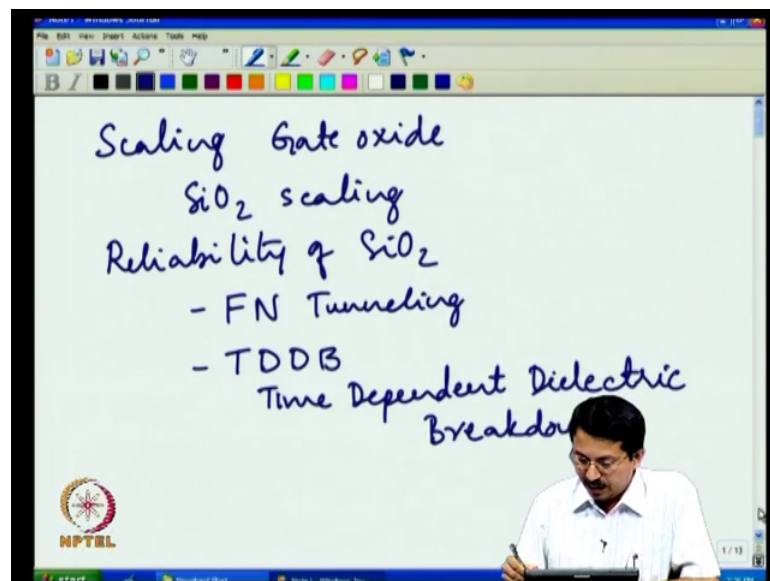 File Edit View Insert Actions Tools Help
B I
Scaling Gate oxide
SiO2 scaling
Reliability of SiO2
- FN Tunneling
- TDDB
Time Dependent Dielectric
NPTEL
1 / 13
start